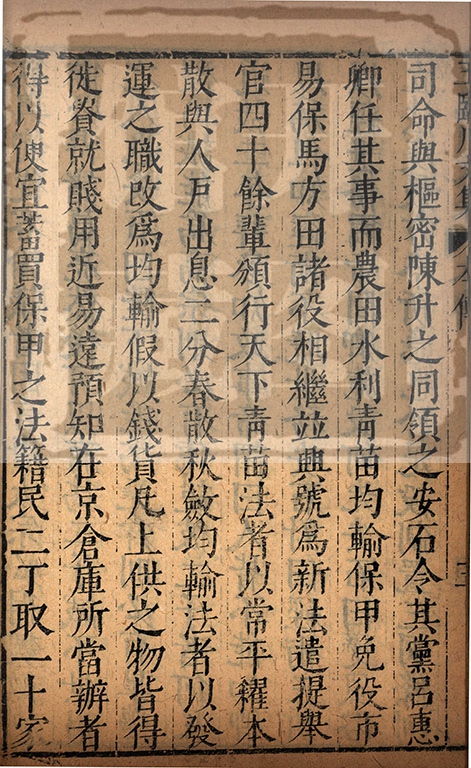 司命與樞密陳升之同領之安石令其黨呂惠
卿任其事而農田水利青苗均輸保甲免役市
易保馬方田諸役相繼並興號爲新法遣提舉
官四十餘輩頒行天下青苗法者以常平糴本
散與人戶出息二分春散秋斂均輸法者以發
運之職改爲均輸假以錢貨凡上供之物皆得
徙貴就賤用近易遠預知在京倉庫所當辦者
得以便宜蓄買保甲之法籍民二丁取一十家